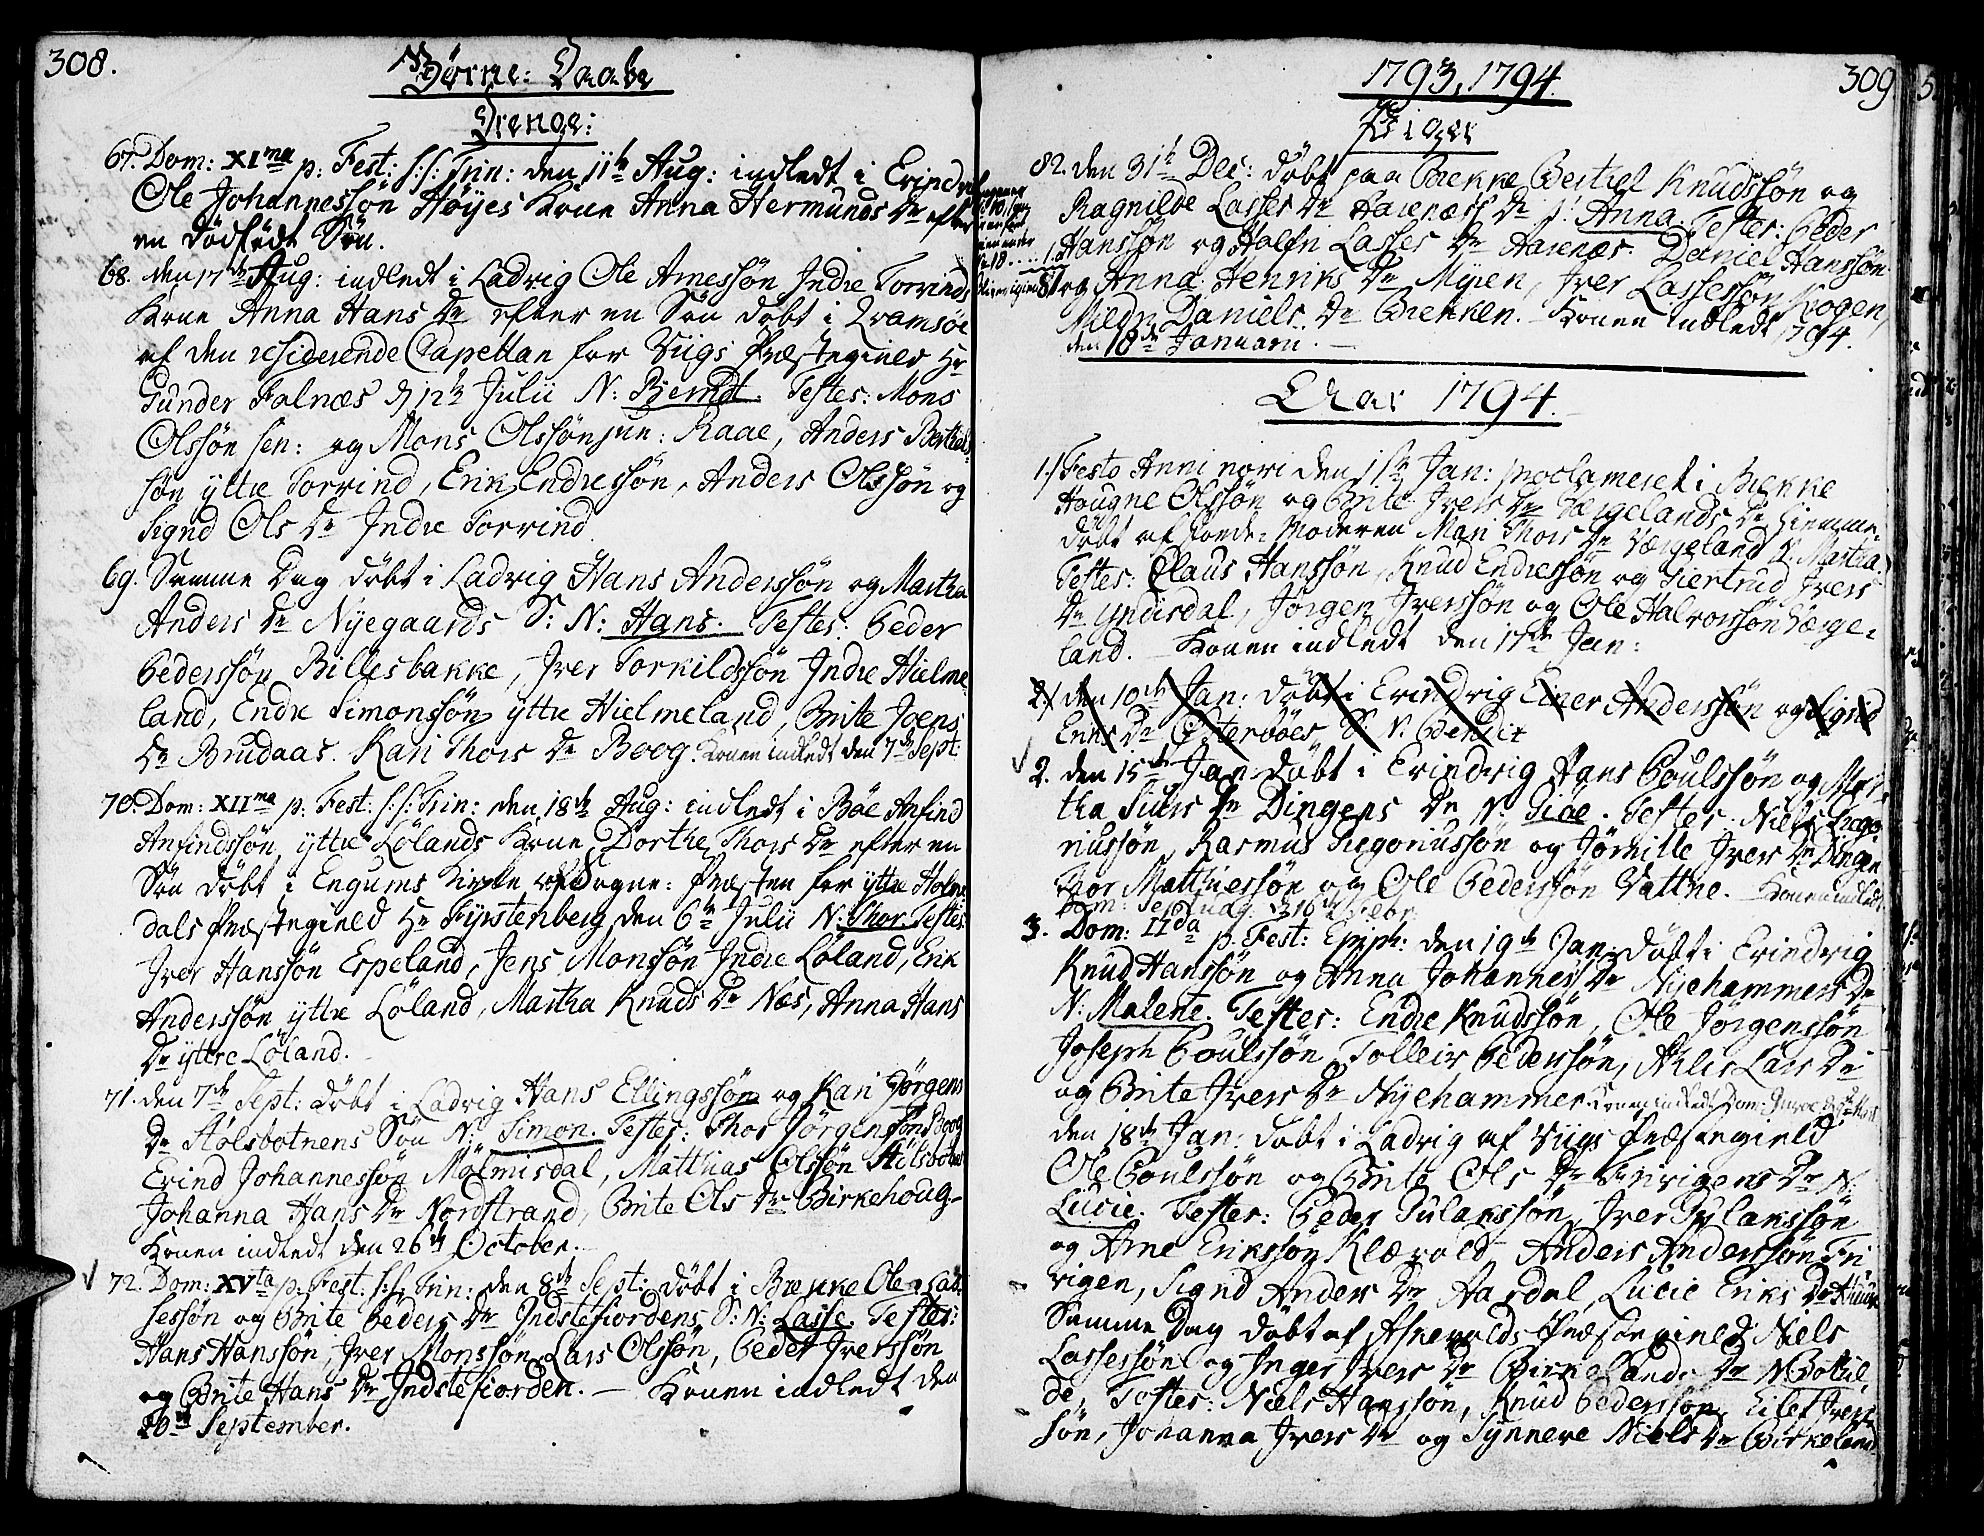 308.
Børne: Daabe
Drenge:
67. Dom: XIma p: Fest: s:s: Trin: den 11te Aug: indledt i Evindvi
Ole Johannessøn Høyes Kone Anna Hermunds Dr efter
en dødfødt Søn.
68. den 17de Aug: indledt i Ladvig Ole Arnessøn Indre Torvinds
Kone Anna Hans Dr efter en Søn døbt i Qvamsøe
af den residerende Capellan for Viigs Præstegield Hr
Gunder Falnæs d 12te Julii N: Berndt. Testes: Mons
Olssøn sen: og Mons Olssøn jun: Raae, Anders Berthels-
søn yttre Torvind, Erik Endressøn, Anders Olssøn og
Signd Ols Dr Indre Torvind.
69. Samme Dag døbt i Ladvig Hans Anderssøn og Martha
Anders Dr Nyegaards S: N: Hans. Testes: Peder
Pederssøn Billesbakke, Iver Torkildssøn Indre Hielme-
land, Endre Simonssøn yttre Hielmeland, Brite Joens
Dr Brudaas. Kari Thors Dr Boog. Konen indledt den 7de Sept:
70. Dom: XIIma p: Fest: s:s: Trin: den 18de Aug: indledt i Bøe Anfind
Anfindssøn yttre Lølands Kone Dorthe Thors Dr efter en
Søn døbt i Engums Kirke af Sogne-Præsten for yttre Holme-
dals Præstegield Hr Fyrstenberg den 6te Julii N: Thor. Testes:
Iver Hanssøn Espeland, Jens Monssøn Indre Løland, Erik
Anderssøn yttre Løland, Martha Knuds Dr Næs, Anna Hans
Dr yttre Løland.
71. den 7de Sept: døbt i Ladvig Hans Ellingssøn og Kari Jørgens
Dr Stølsbotnens Søn N: Simon. Testes: Thor Jørgenssøn Boog
Erind Johannessøn Molmisdal, Matthias Olssøn Stølsbotnen
Johanna Hans Dr Nordstrand, Brite Ols Dr Birkehoug-
Konen indledt den 26de October.
72. Dom: XVta p: Fest: s:s: Trin: den 8de Sept: døbt i Brekke Ole Las-
sessøn og Brite Peders Dr Indstefiordens S: N: Lasse. Testes:
Hans Hanssøn, Iver Monssøn, Lars Olssøn, Peder Iverssøn
og Brite Hans Dr Indstefiorden. — Konen indledt den
29de September.
1793, 1794.
309
Piger
82. den 31te Dec: døbt paa Brekke Bertel Knudssøn og
Ragnilde Lasses Dr Aarenæss Dr N: Anna. Testes: Peder
Hanssøn og Halfn Lasses Dr Aarenæs. Daniel Hanssøn
og Anna Henriks Dr Myren, Iver Lassessøn Kogen,
Mildri Daniels Dr Brekken. — Konen indledt
den 18de Januarii 1794.
Aar 1794.
1. Festo Anni novi den 1ste Jan: proclameret i Brekke
Hougne Olssøn og Brite Ivers Dr Værgelands Dr hiemme-
døbt af Jorde-Moderen Mari Thors Dr Værgeland N: Martha.
Testes: Claus Hanssøn, Knud Endressøn og Giertrud Ivers
Dr Yndisdal, Jørgen Iverssøn og Ole Halvorssøn Værge-
land. — Konen indledt den 17de Jan:
2. den 10de Jan: døbt i Evindvig Einer Anderssøn og Sigrid
Eriks Dr Østerbøes S N: Bendix
2. den 15de Jan døbt i Evindvig Hans Poulssøn og Mar-
tha Siurs Dr Dingens Dr N: Siøe. Testes: Niels Grego-
riussøn, Rasmus Gregoriussøn og Jørnille Ivers Dr Dingen
Thor Matthiessøn og Ole Pederssøn Vattne. — Konen indledt
Dom: Septuag: d 16de Febr:
3. Dom: IIda p: Fest: Epiph: den 19de Jan: døbt i Evindvig
Knud Hanssøn og Anna Johannes Dr Nyehammers Dr
N: Malene. Testes: Endre Knudssøn, Ole Jørgenssøn
Joseph Poulssøn, Tolleiv Pederssøn, Nilis Lars Dr
og Brite Ivers Dr Nyehammer.
den 18de Jan: døbt i Ladvig af Viigs Præstegield
Ole Poulssøn og Brite Ols Dr Trivigens Dr N:
Lucie. Testes: Peder Gulakssøn, Iver Gulakssøn
og Arne Erikssøn Klævold, Anders Anderssøn Tri-
vigen, Signd Anders Dr Aardal, Lucie Eriks Dr
Samme Dag døbt af Askevolds Præstegield Niels
Lassessøn og Inger Ivers Dr Birkelands Dr N: Bothil-
de. Testes: Niels Hanssøn, Knud Pederssøn, Eilef Ivers-
søn, Johanna Ivers Dr og Synneve Niels Dr Birkeland